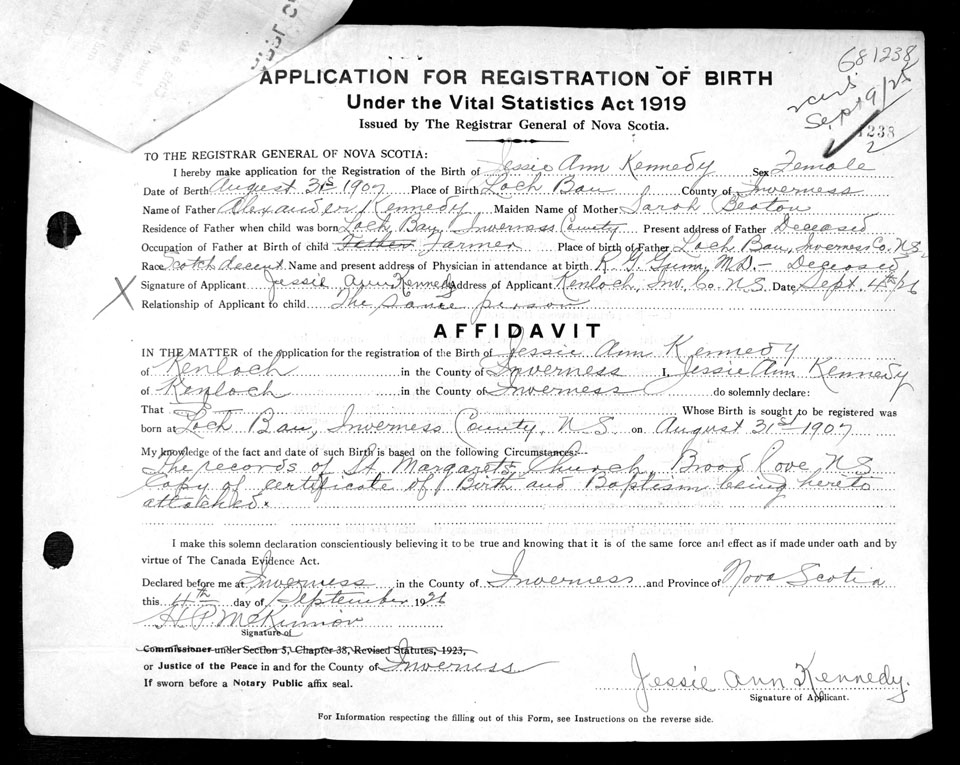 681238
APPLICATION FOR REGISTRATION OF BIRTH
Under the Vital Statistics Act 1919
Issued by The Registrar General of Nova Scotia.
Sept 9/26
1238
2
TO THE REGISTRAR GENERAL OF NOVA SCOTIA:
I hereby make application for the Registration of the Birth of Jessie Ann Kennedy Sex Female
Date of Birth August 31st 1907 Place of Birth Loch Ban County of Inverness
Name of Father Alexander Kennedy Maiden Name of Mother Sarah Beaton
Residence of Father when child was born Loch Ban, Inverness County Present address of Father Deceased
Occupation of Father at Birth of child Father Farmer Place of birth of Father Loch Ban, Inverness Co. N.S.
Race Scotch decent Name and present address of Physician in attendance at birth R. G. Gunn, M.D. - Deceased
X Signature of Applicant Jessie Ann Kennedy Address of Applicant Kenloch, Inv. Co. N.S. Date Sept. 4th/26
Relationship of Applicant to child The same person
AFFIDAVIT
IN THE MATTER of the Application for the registration of the Birth of Jessie Ann Kennedy
of Kenloch in the County of Inverness I, Jessie Ann Kennedy
of Kenloch in the County of Inverness do solemnly declare:
That Whose Birth is sought to be registered was
born at Loch Ban, Inverness County, N.S. on August 31st 1907
My knowledge of the fact and date of such Birth is based on the following Circumstances:—
The records of St. Margarets Church, Broad Cove, N.S.
Copy of certificate of Birth and Baptism being hereto
attached.
I make this solemn declaration conscientiously believing it to be true and knowing that it is of the same force and effect as if made under oath and by
virtue of The Canada Evidence Act.
Declared before me at Inverness in the County of Inverness and Province of Nova Scotia
this 4th day of September 1926
H. P. McKinnon
Signature of
Commissioner under Section 5, Chapter 38, Revised Statutes, 1923,
or Justice of the Peace in and for the County of Inverness
If sworn before a Notary Public affix seal.
Jessie Ann Kennedy.
Signature of Applicant.
For Information respecting the filling out of this Form, see Instructions on the reverse side.